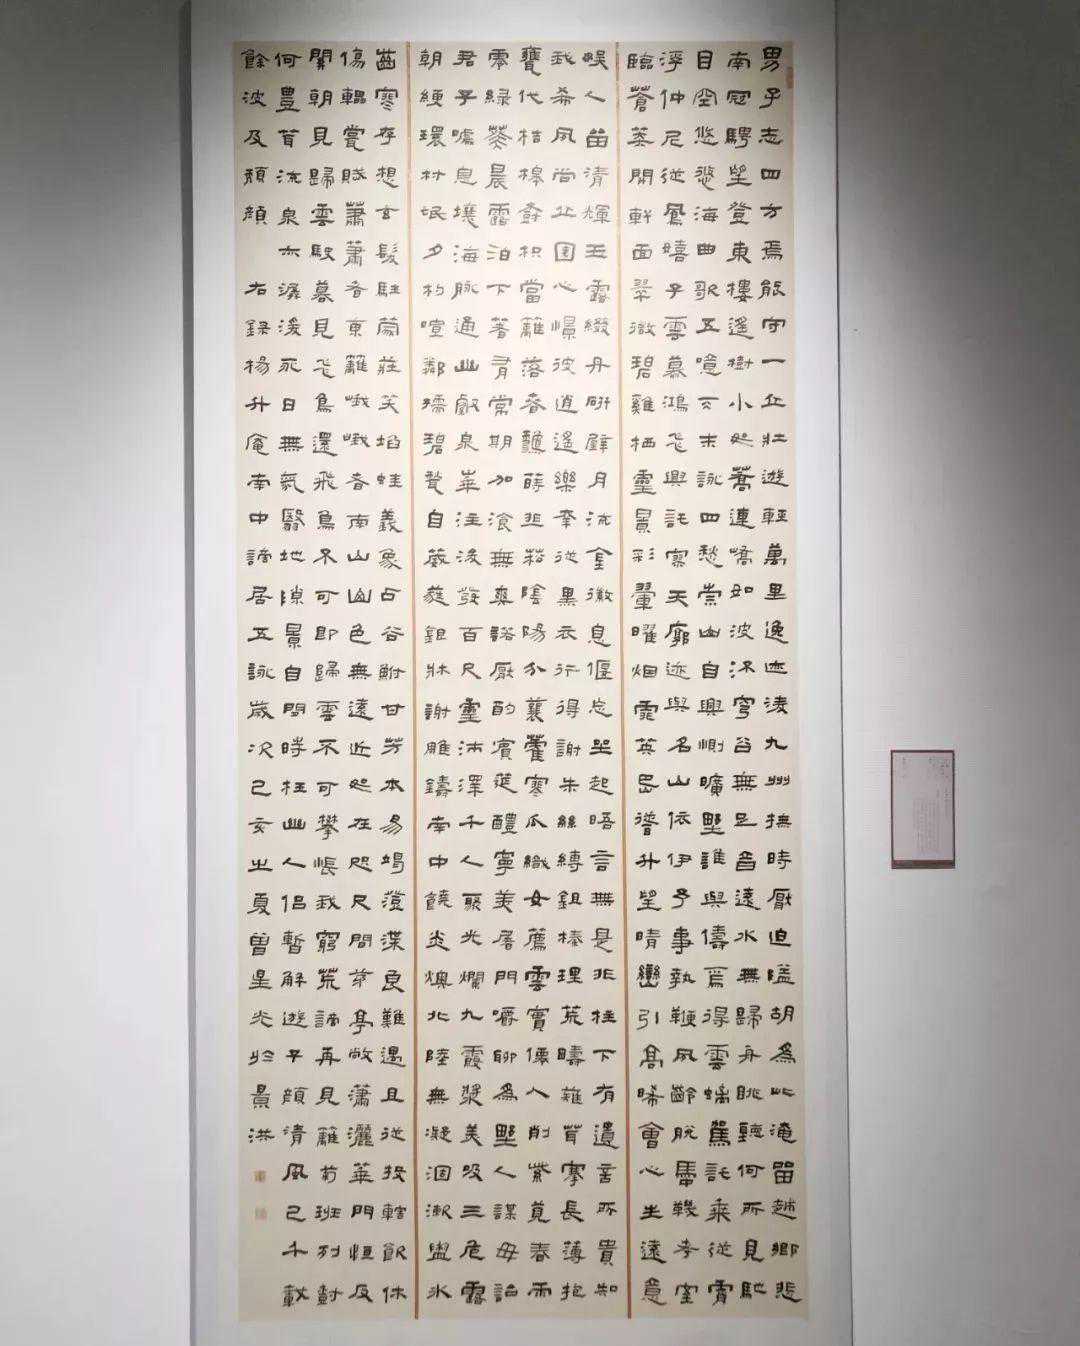 男子志四方焉能守一丘壯遊輕萬里逸迹淩九州撫時厭迫隘胡爲此淹留越鄉悲
南冠騁望登東樓遙樹小如薺連嶠如波浮穹谷無足音遠水無歸舟眺聽何所見馳
目空悠悠海曲歌五噫天末詠四愁崇山自興惻曠野誰與儔焉得雲螭駕託乘從霄
浮仲尼從鳳嬉子雲慕鴻飛興託寥天廓迹與名山依伊予事執鞭夙齡脫馽鞿考室
臨蒼莽開軒面翠微碧雞栖靈景彩翬曜烟霏英岳升望晴巒引高晞會心生遠意
睽人留清輝玉露綴丹研璧月流金徽息偃忘坐起晤言無是非柱下有遺言所貴知
我希夙尚丘園心憬彼逍遙樂牽從黑衣行得謝朱絲縛鉏榛理荒疇薙荊搴長薄抱
甕代桔槔樹枳當籬落春蒔韭菘陰陽分蘘藿寒瓜織女薦雲實僊人削紫莧春雨
零綠葵晨露泊下箸有常期加飡無爽厭酌賓筵醴寧羨屠門嚼聊爲野人謀毋詒
君子噱息壤海脈通幽巖泉萃注浚發百尺靈沛澤千人聚光爛九霞漿美吸三危露
朝綆環村氓夕杓喧鄰孺碧甃自葳蕤銀牀謝雕鑄南中饒炎燠北陸無凝涸漱盥冰
齒寒存想玄髮駐蒙莊笑埳蛙義象占谷鮒甘芳本易竭澄渫良難遇且從投轄飲休
傷嘗賦蕭蕭者東籬峨峨者南山山色無遠近如在咫尺間茅亭敞瀟灑華門恒反
關朝見歸雲駛暮見飛鳥還飛鳥不可即歸雲不可攀悵我窮荒謫再見籬菊班列對
何豊昔流泉亦潺湲死日無氣翳地隙景自閒時枉幽人侶暫解遊子顏清風已千載
餘波及頹顏 右錄楊升庵南中謫居五詠歲次己亥之夏曾星光於景洪